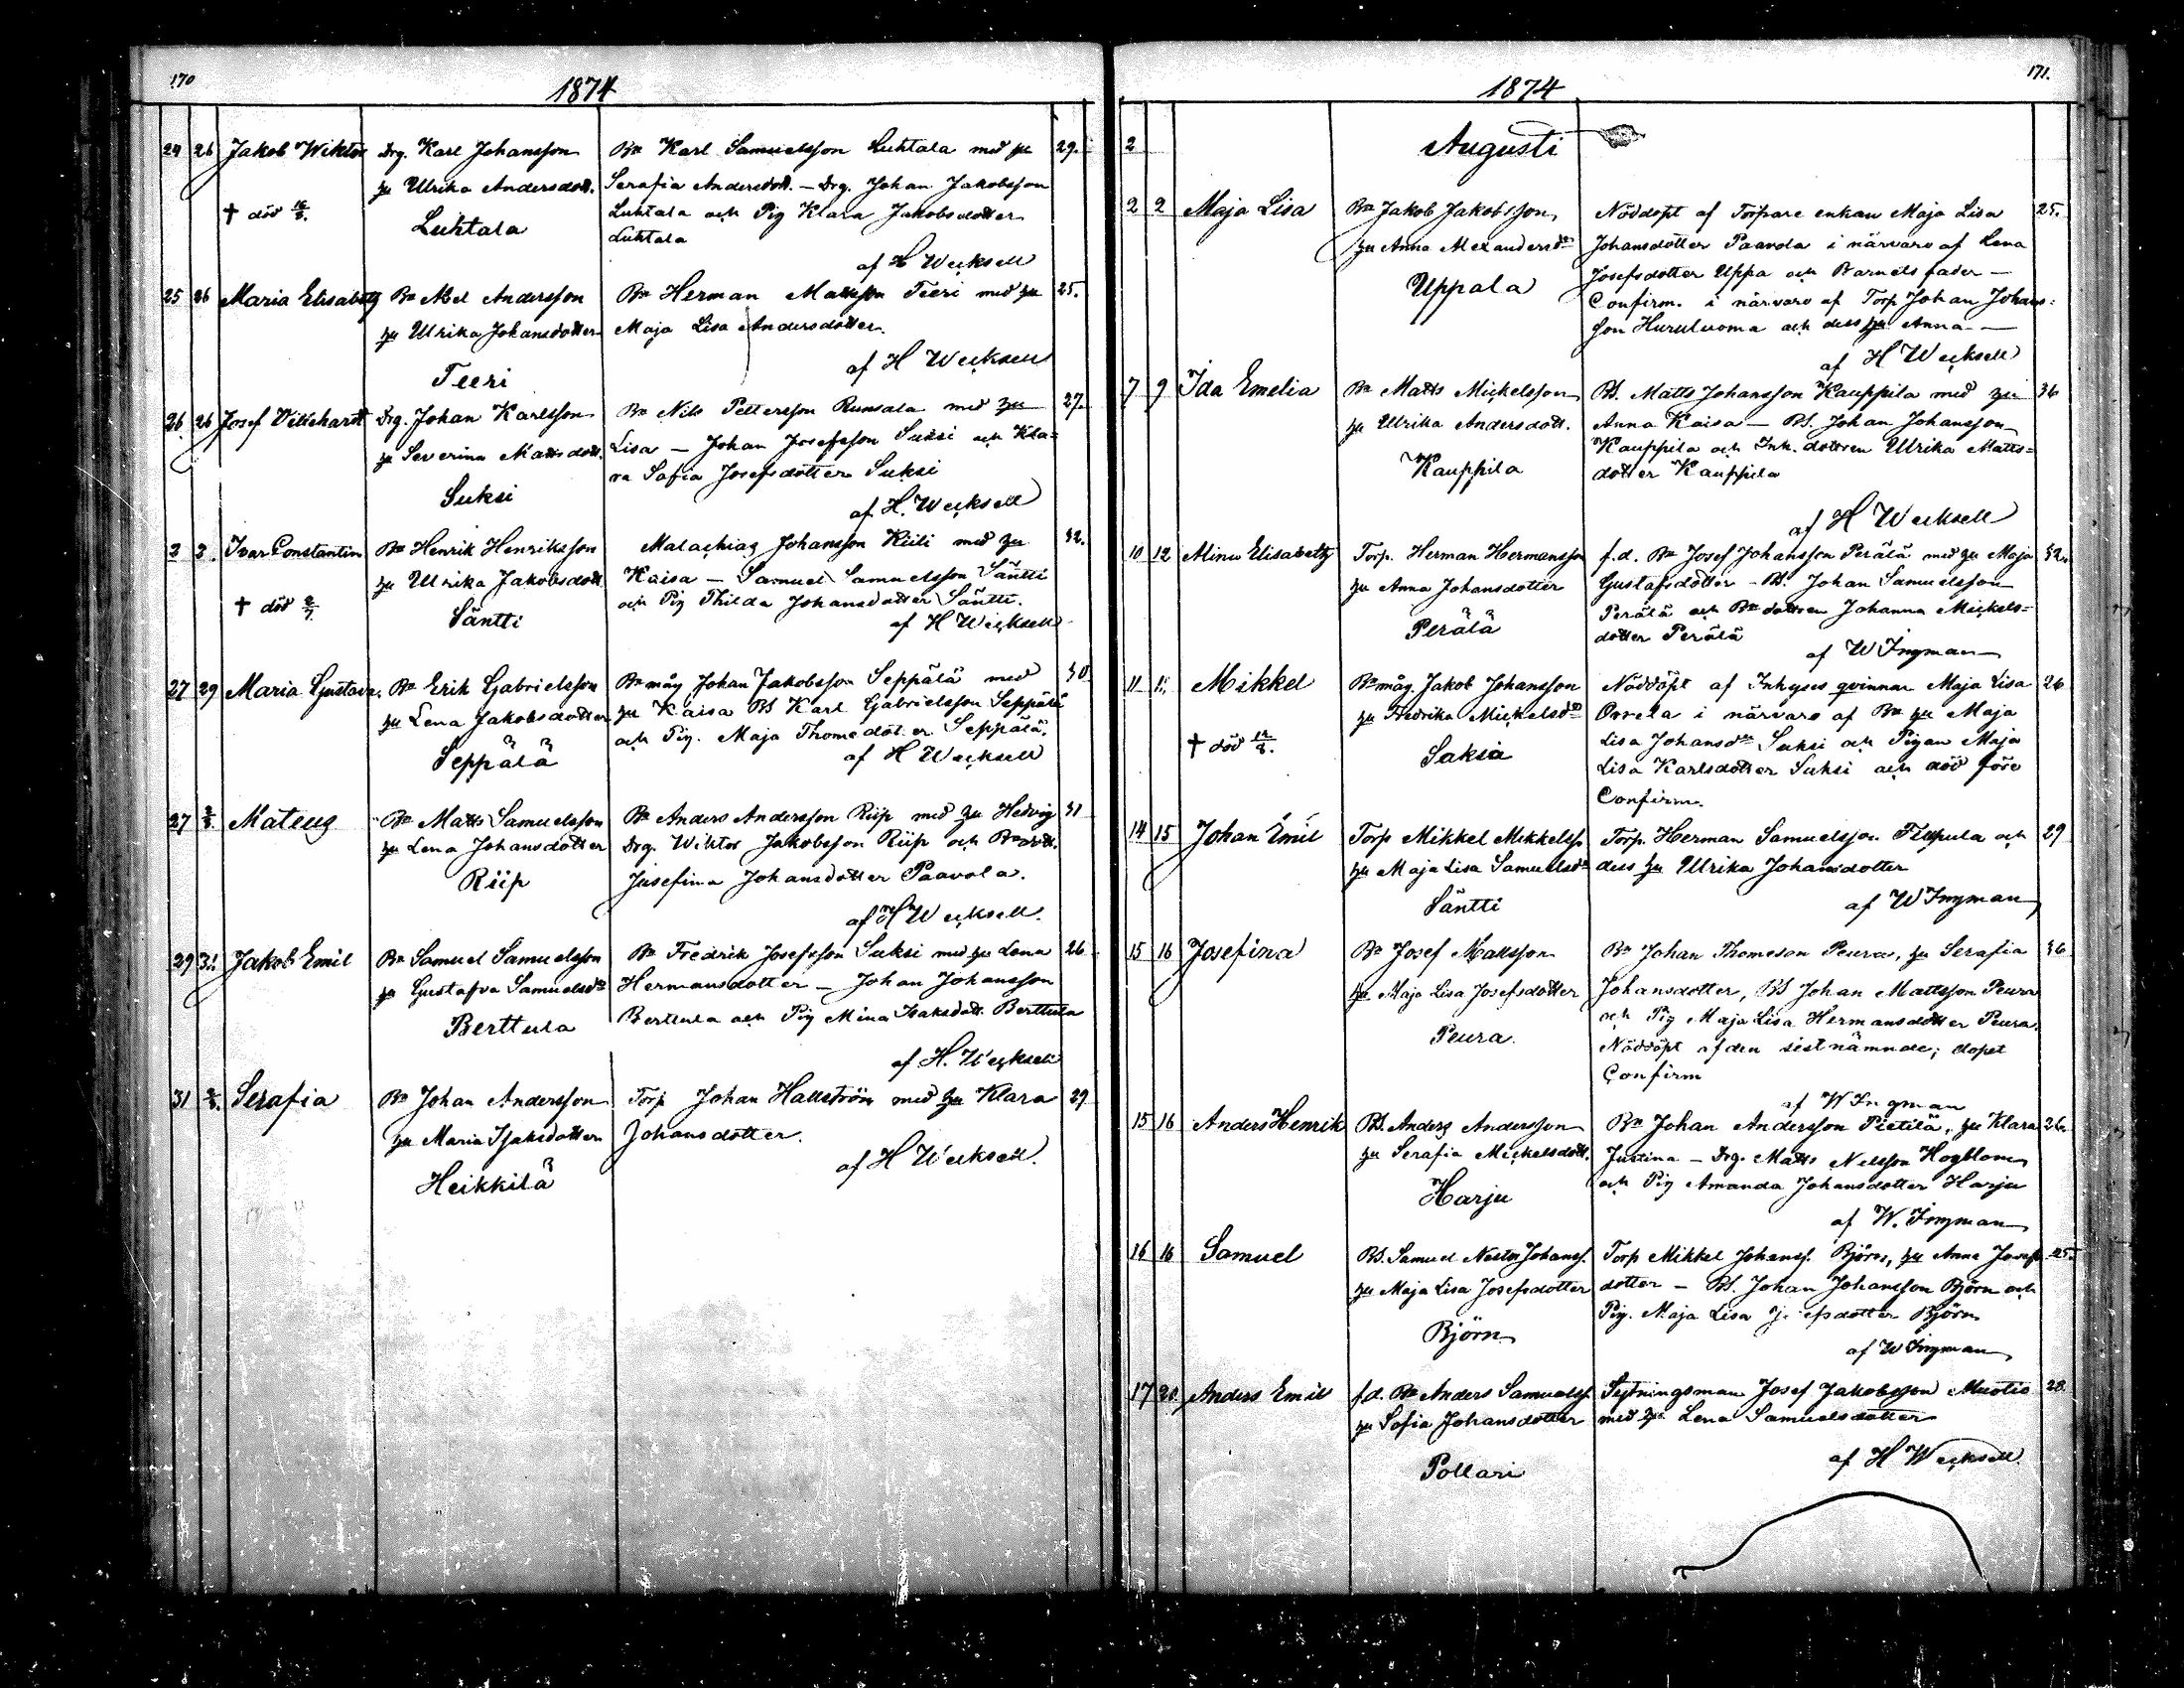 170
1874
24 26 Jakob Wiktor Drg. Karl Johansson Bn Karl Samuelsson Luhtala med hu 29.
hu Ulrika Andersdott. Serafia Andersdott. – Drg. Johan Jakobsson
† död Luhtala och Pig Klara Jakobsdotter
Luhtala Luhtala
af H Wecksell
25 26 Maria Elisabeth Bn Abel Andersson Bn Herman Mattsson Teeri med hu 25.
hu Ulrika Johansdotter Maja Lisa Andersdotter.
af H Wecksell
Teeri
26 26 Josef Villehard Drg. Johan Karlsson Bn Nils Pettersson Runsala med hu 27.
hu Severina Mattsdott. Lisa – Johan Josefsson Suksi och Kla=
ra Sofia Josefsdotter Suksi
Suksi af H. Wecksell
2 2. Ivar Constantin Bn Henrik Henriksson Malachias Johansson Kiili med hu 32.
hu Ulrika Jakobsdott Kaisa – Samuel Samuelsson Säntti
† död 2/7. och Pig Thilda Johansdotter Säntti.
Säntti af H Wecksell
27 29 Maria Gustava. Bn Erik Gabrielsson Bn måg Johan Jakobsson Seppälä med 30
hu Lena Jakobsdotter hu Kaisa BS Karl Gabrielsson Seppälä
och Pig. Maja Thomedotter Seppälä.
Seppälä af H Wecksell
27 2/8 Mateus Bn Matts Samuelsson Bn Anders Andersson Riip med hu Hedvig 31
hu Lena Johansdotter Drg. Wiktor Jakobsson Riip och Bn dott.
Riip Josefina Johansdotter Paavola.
af H Wecksell.
29 31. Jakob Emil Bn Samuel Samuelsson Bn Fredrik Josefsson Suksi med hu Lena 26
hu Gustafva Samuelsdr Hermansdotter – Johan Johansson
Berttula Berttula och Pig Mina Isaksdott. Berttula
af H. Wecksell
31 2/8. Serafia Bn Johan Andersson Torp Johan Hallström med hu Klara 29
hu Maria Isaksdotter Johansdotter.
Heikkilä af H Wecksell.
171.
1874
2 Augusti
2 2 Maja Lisa Bn Jakob Jakobsson Nöddöpt af Torpare enkan Maja Lisa 25.
hu Anna Alexandersdr Johansdotter Paavola i närvaro af Lena
Josefsdotter Uppa och Barnets fader –
Uppala Confirm. i närvaro af Torp Johan Johans=
son Huruluoma och dess hu Anna –
af H Wecksell
7 9 Ida Emelia Bn Matts Mickelsson BS. Matts Johansson Kauppila med hu 36
hu Ulrika Andersdott. Anna Kaisa – BS. Johan Johansson
Kauppila och Inh. dottren Ulrika Matts=
Kauppila dotter Kauppila
af H Wecksell
10 12 Mina Elisabeth Torp. Herman Hermansson f.d. Bn Josef Johansson Perälä med hu Maja 32.
hu Anna Johansdotter Gustafsdotter – BS. Johan Samuelsson
Perälä och Bn dottren Johanna Mickels=
Perälä dotter Perälä
af W Ingman
11 11. Mikkel Bn måg. Jakob Johansson Nöddöpt af Inhyses qvinnan Maja Lisa 26
hu Fredrika Mickelsdr Orrela i närvaro af Bn hu Maja
† död 12/8. Lisa Johansdr Suksi och Pigan Maja
Saksa Lisa Karlsdotter Suksi och död före
Confirm.
14 15 Johan Emil Torp Mikkel Mikkelss. Torp. Herman Samuelsson och 29
hu Maja Lisa Samuelsdr dess hu Ulrika Johansdotter
Säntti af W Ingman
15 16 Josefina Bn Josef Mattsson Bn Johan Thomeson Peura, hu Serafia 36
hu Maja Lisa Josefsdotter Johansdotter, BS Johan Mattsson Peura
och Pig Maja Lisa Hermansdotter Peura.
Peura. Nöddöpt af den sistnämnde; dopet
Confirm
af W Ingman
15 16 Anders Henrik BS. Anders Andersson Bn Johan Andersson Pietilä, hu Klara 26.
hu Serafia Mickelsdott. Justina – Drg. Matts Nilsson Hogblom
och Pig Amanda Johansdotter Harju
Harju af W. Ingman
16 16 Samuel BS. Samuel Nestor Johanss. Torp Mikkel Johanss. Björn, hu Anna Josefs 25.
hu Maja Lisa Josefsdotter dotter – BS. Johan Johansson Björn och
Pig. Maja Lisa Josefsdotter Björn
Björn af W Ingman
17 20. Anders Emil f.d. Bn Anders Samuelss. Sytningsman Josef Jakobsson Muotio 28.
hu Sofia Johansdotter med hu Lena Samuelsdotter
Pollari af H Wecksell.